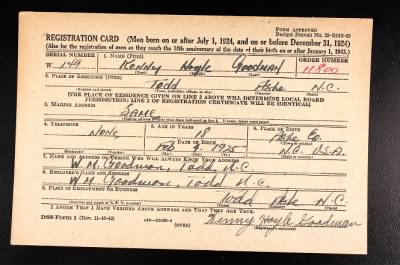 FORM APPROVED
REGISTRATION CARD—(Men born on or after July 1, 1924, and on or before December 31, 1924)
(Also for the registration of men as they reach the 18th anniversary of the date of their birth on or after January 1, 1943.)
SERIAL NUMBER 1. NAME (Print) ORDER NUMBER
W 149 KENNY Hoyle GOODMAN 11800
(First) (Middle) (Last)
2. PLACE OF RESIDENCE (Print)
Todd Ashe N.C.
[THE PLACE OF RESIDENCE GIVEN ON LINE 2 ABOVE WILL DETERMINE LOCAL BOARD
JURISDICTION; LINE 2 OF REGISTRATION CERTIFICATE WILL BE IDENTICAL]
3. MAILING ADDRESS
SAME
4. TELEPHONE 5. AGE IN YEARS 6. PLACE OF BIRTH
None 18 Ashe Co.
DATE OF BIRTH
Feb 1925 N.C. U.S.A.
7. NAME AND ADDRESS OF PERSON WHO WILL ALWAYS KNOW YOUR ADDRESS
W. M. Goodman, Todd, N.C.
8. EMPLOYER'S NAME AND ADDRESS
W M Goodman, Todd N.C.
9. PLACE OF EMPLOYMENT OR BUSINESS
Todd Ashe N.C.
I AFFIRM THAT I HAVE VERIFIED ABOVE ANSWERS AND THAT THEY ARE TRUE.
DSS Form 1 (Rev. 11-16-42) (OVER) Kenny Hoyle Goodman
(Registrant's signature)